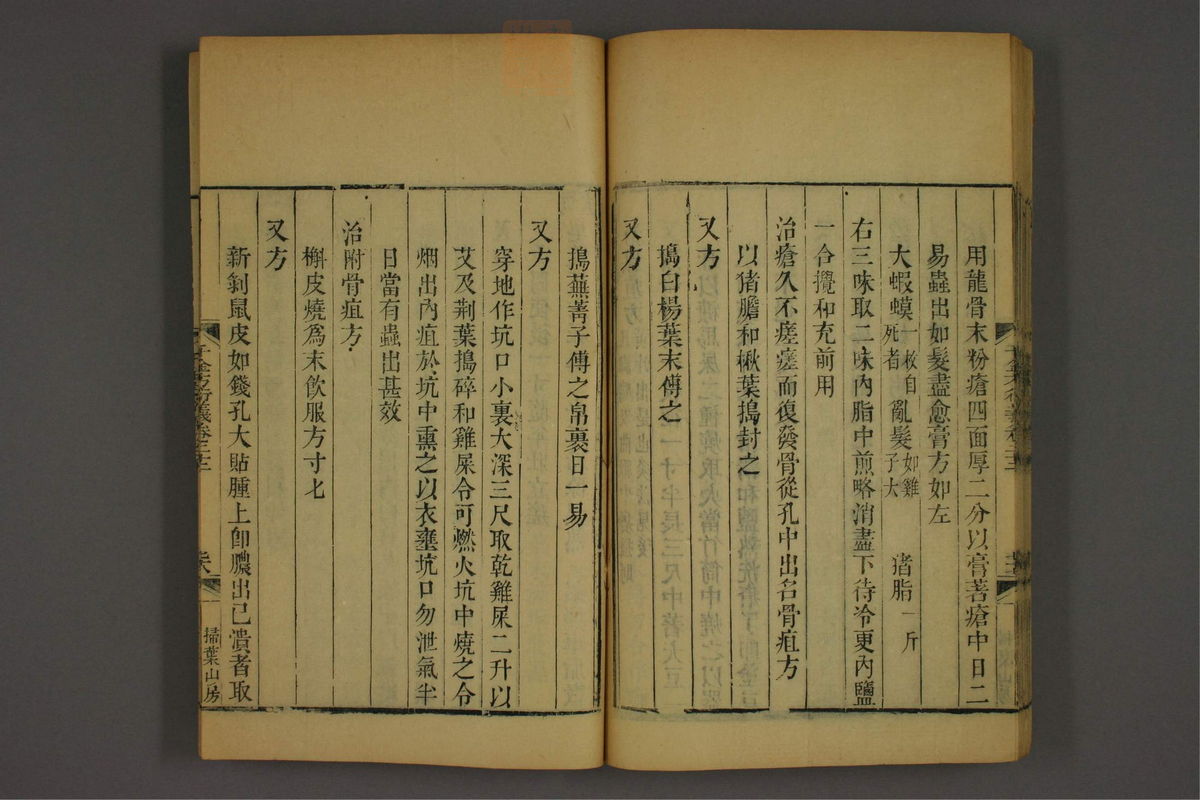 用龍骨末粉瘡四面厚二分以膏著瘡中日二
易蟲出如髮盡愈膏方如左
大蝦蟆一枚自死者 亂髮如雞子大 猪脂一斤
右三味取二味內脂中煎略消盡下待冷更內鹽
一合攪和充前用
治瘡久不瘥瘥而復發骨從孔中出名骨疽方
以猪膽和楸葉搗封之
又方
搗白楊葉末傅之
又方
搗蕪菁子傅之帛裹日一易
又方
穿地作坑口小裏大深三尺取乾雞屎二升以
艾及荆葉搗碎和雞屎令可燃火坑中燒之令
烟出內疽於坑中熏之以衣壅坑口勿泄氣半
日當有蟲出甚效
治附骨疽方
槲皮燒爲末飲服方寸匕
又方
新剝鼠皮如錢孔大貼腫上卽膿出已潰者取
千金方衍義卷二十二
掃葉山房